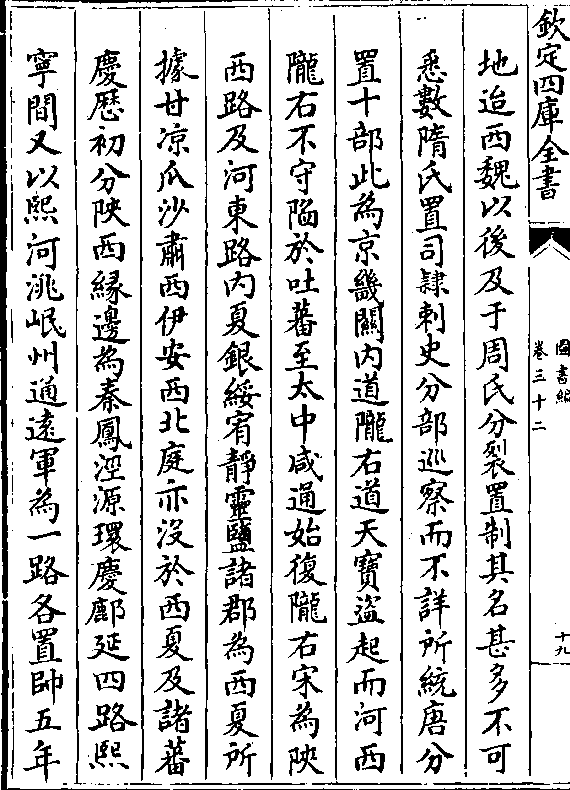 欽定四庫全書
圖書編
卷三十二
十九
地迨西魏以後及于周氏分裂置制其名甚多不可
悉數隋氏置司隸刺史分部巡察而不詳所統唐分
置十部此為京畿關内道隴右道天寶盜起而河西
隴右不守陥於吐蕃至太中咸通始復隴右宋為陜
西路及河東路内夏銀綏宥靜靈鹽諸郡為西夏所
據甘凉瓜沙肅西伊安西北庭亦没於西夏及諸蕃
慶歴初分陜西緣邊為秦鳳涇源環慶鄜延四路熙
寧間又以熙河洮岷州通遠軍為一路各置帥五年